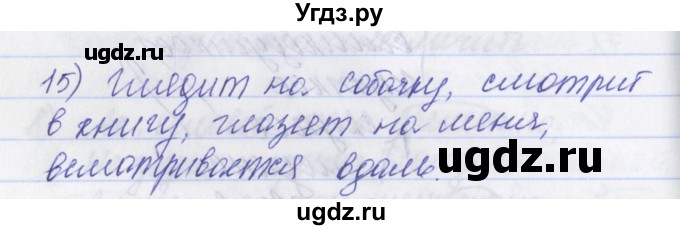 Угдз.ру
ugdz.ru
ugdz.ru
15) Глядит на собачку, смотрит
в книгу, глазеет на меня,
всматривается вдаль.
ugdz.ru
ugdz.ru